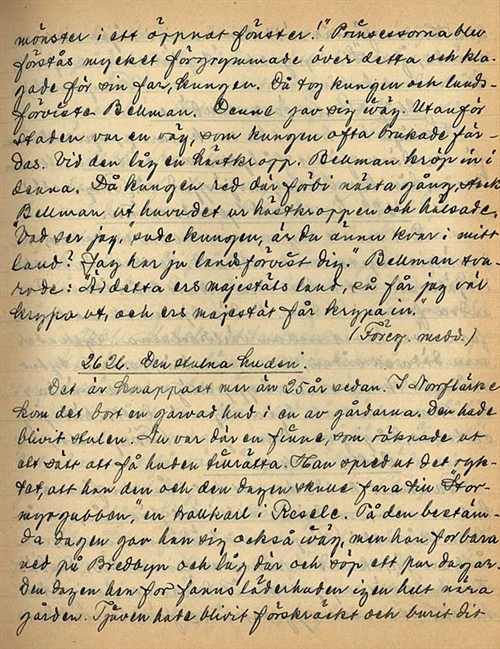 mönster i ett öppnat fönster!" Prinsessorna blev
förstås mycket förgrymmade över detta och kla-
gade för sin far, kungen. Då tog kungen och lands-
förviste Bellman. Denne gav sig iväg. Utanför
staden var en väg, som kungen ofta brukade fär-
das. Vid den låg en hästkropp. Bellman kröp in i
denna. Då kungen red där förbi nästa gång, stack
Bellman ut huvudet ur hästkroppen och hälsade.
"Vad ser jag," sade kungen, är du ännu kvar i mitt
land? Jag har ju landsförvist dig." Bellman sva-
rade: Är detta ers majestäts land, så får jag väl
krypa ut, och ers majestät får krypa in."
(Föreg. medd.)
2626. Den stulna huden.
Det är knappast mer än 25 år sedan. I Norrflärke
kom det bort en garvad hud i en av gårdarna. Den hade
blivit stulen. Nu var där en finne, som räknade ut
ett sätt att få huden tillrätta. Han spred ut det ryk-
tet, att han den och den dagen skulle fara till "Stor-
myrgubben", en trollkarl i Resele. På den bestäm-
da dagen gav han sig också iväg, men han for bara
ned på Bredbyn och låg där och söp ett par dagar.
Den dagen han for fanns läderhuden igen helt nära
gården. Tjuven hade blivit förskräckt och burit dit